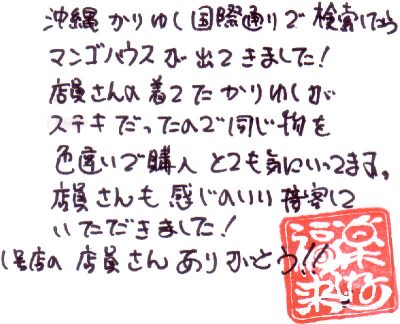 沖縄 かりゆし 国際通りで 検索したら
マンゴハウスが出てきました！
店員さんの着てたかりゆしが
ステキだったので同じ物を
色違いで購入 とても気にいってます。
店員さんも 感じのいい 接客して
いただきました！
1号店の 店員さん ありがとう!!